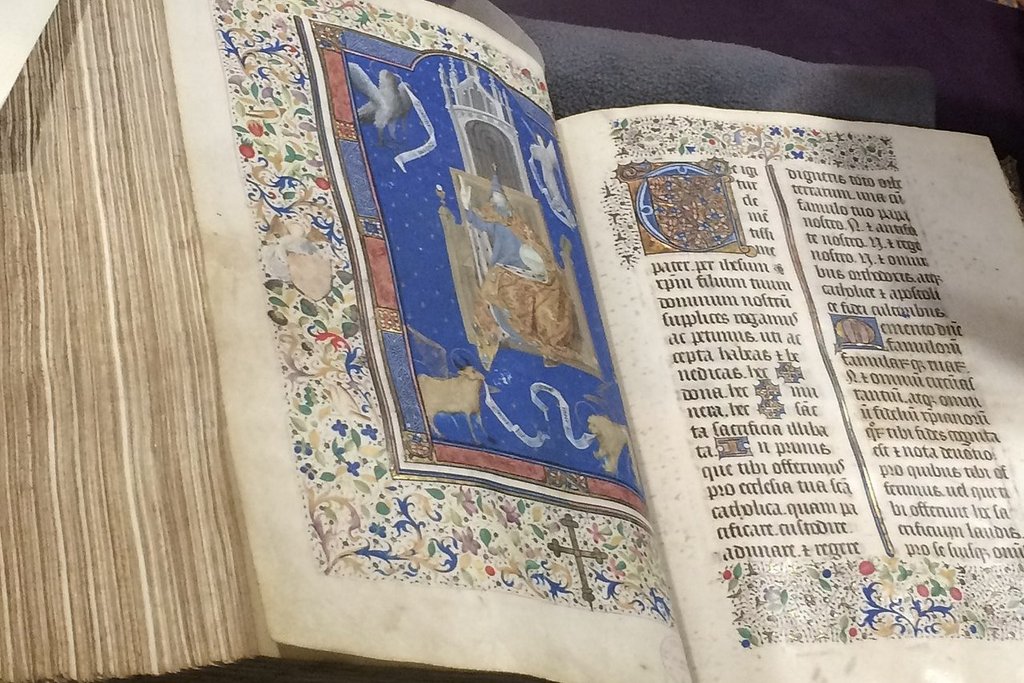 Te igi
tur
cle
mē
tissi
me
pater. per ihesum
xpm filium tuum
dominum nostrū
supplices rogamus
ac petimus. uti ac
cepta habeas & be
nedicas. hec ✠
dona. hec ✠ mu
nera. hec ✠ sāc
ta sacrificia illiba
ta. In primis
que tibi offerimus
pro ecclesia tua scā
catholica. quam pa
cificare. custodire
adunare. & regere
digneris toto orbe
terrarum. una cū
famulo tuo papa
nostro. N. & antisti
te nostro. N. & rege
nostro. N. & omni
bus orthodoxis. atq;
catholice & apostoli
ce fidei cultoribus.
Memento dn̄e
famulorū
famularūq; tuarū
N. & omniū circūas
tantiū. atq; omni
ū fideliū xp̄ianorū
tibi fides cognita
est & nota deuotio
pro quibus tibi of
ferimus. uel qui ti
bi offerunt hoc sa
crificium laudis
pro se suisq; omni